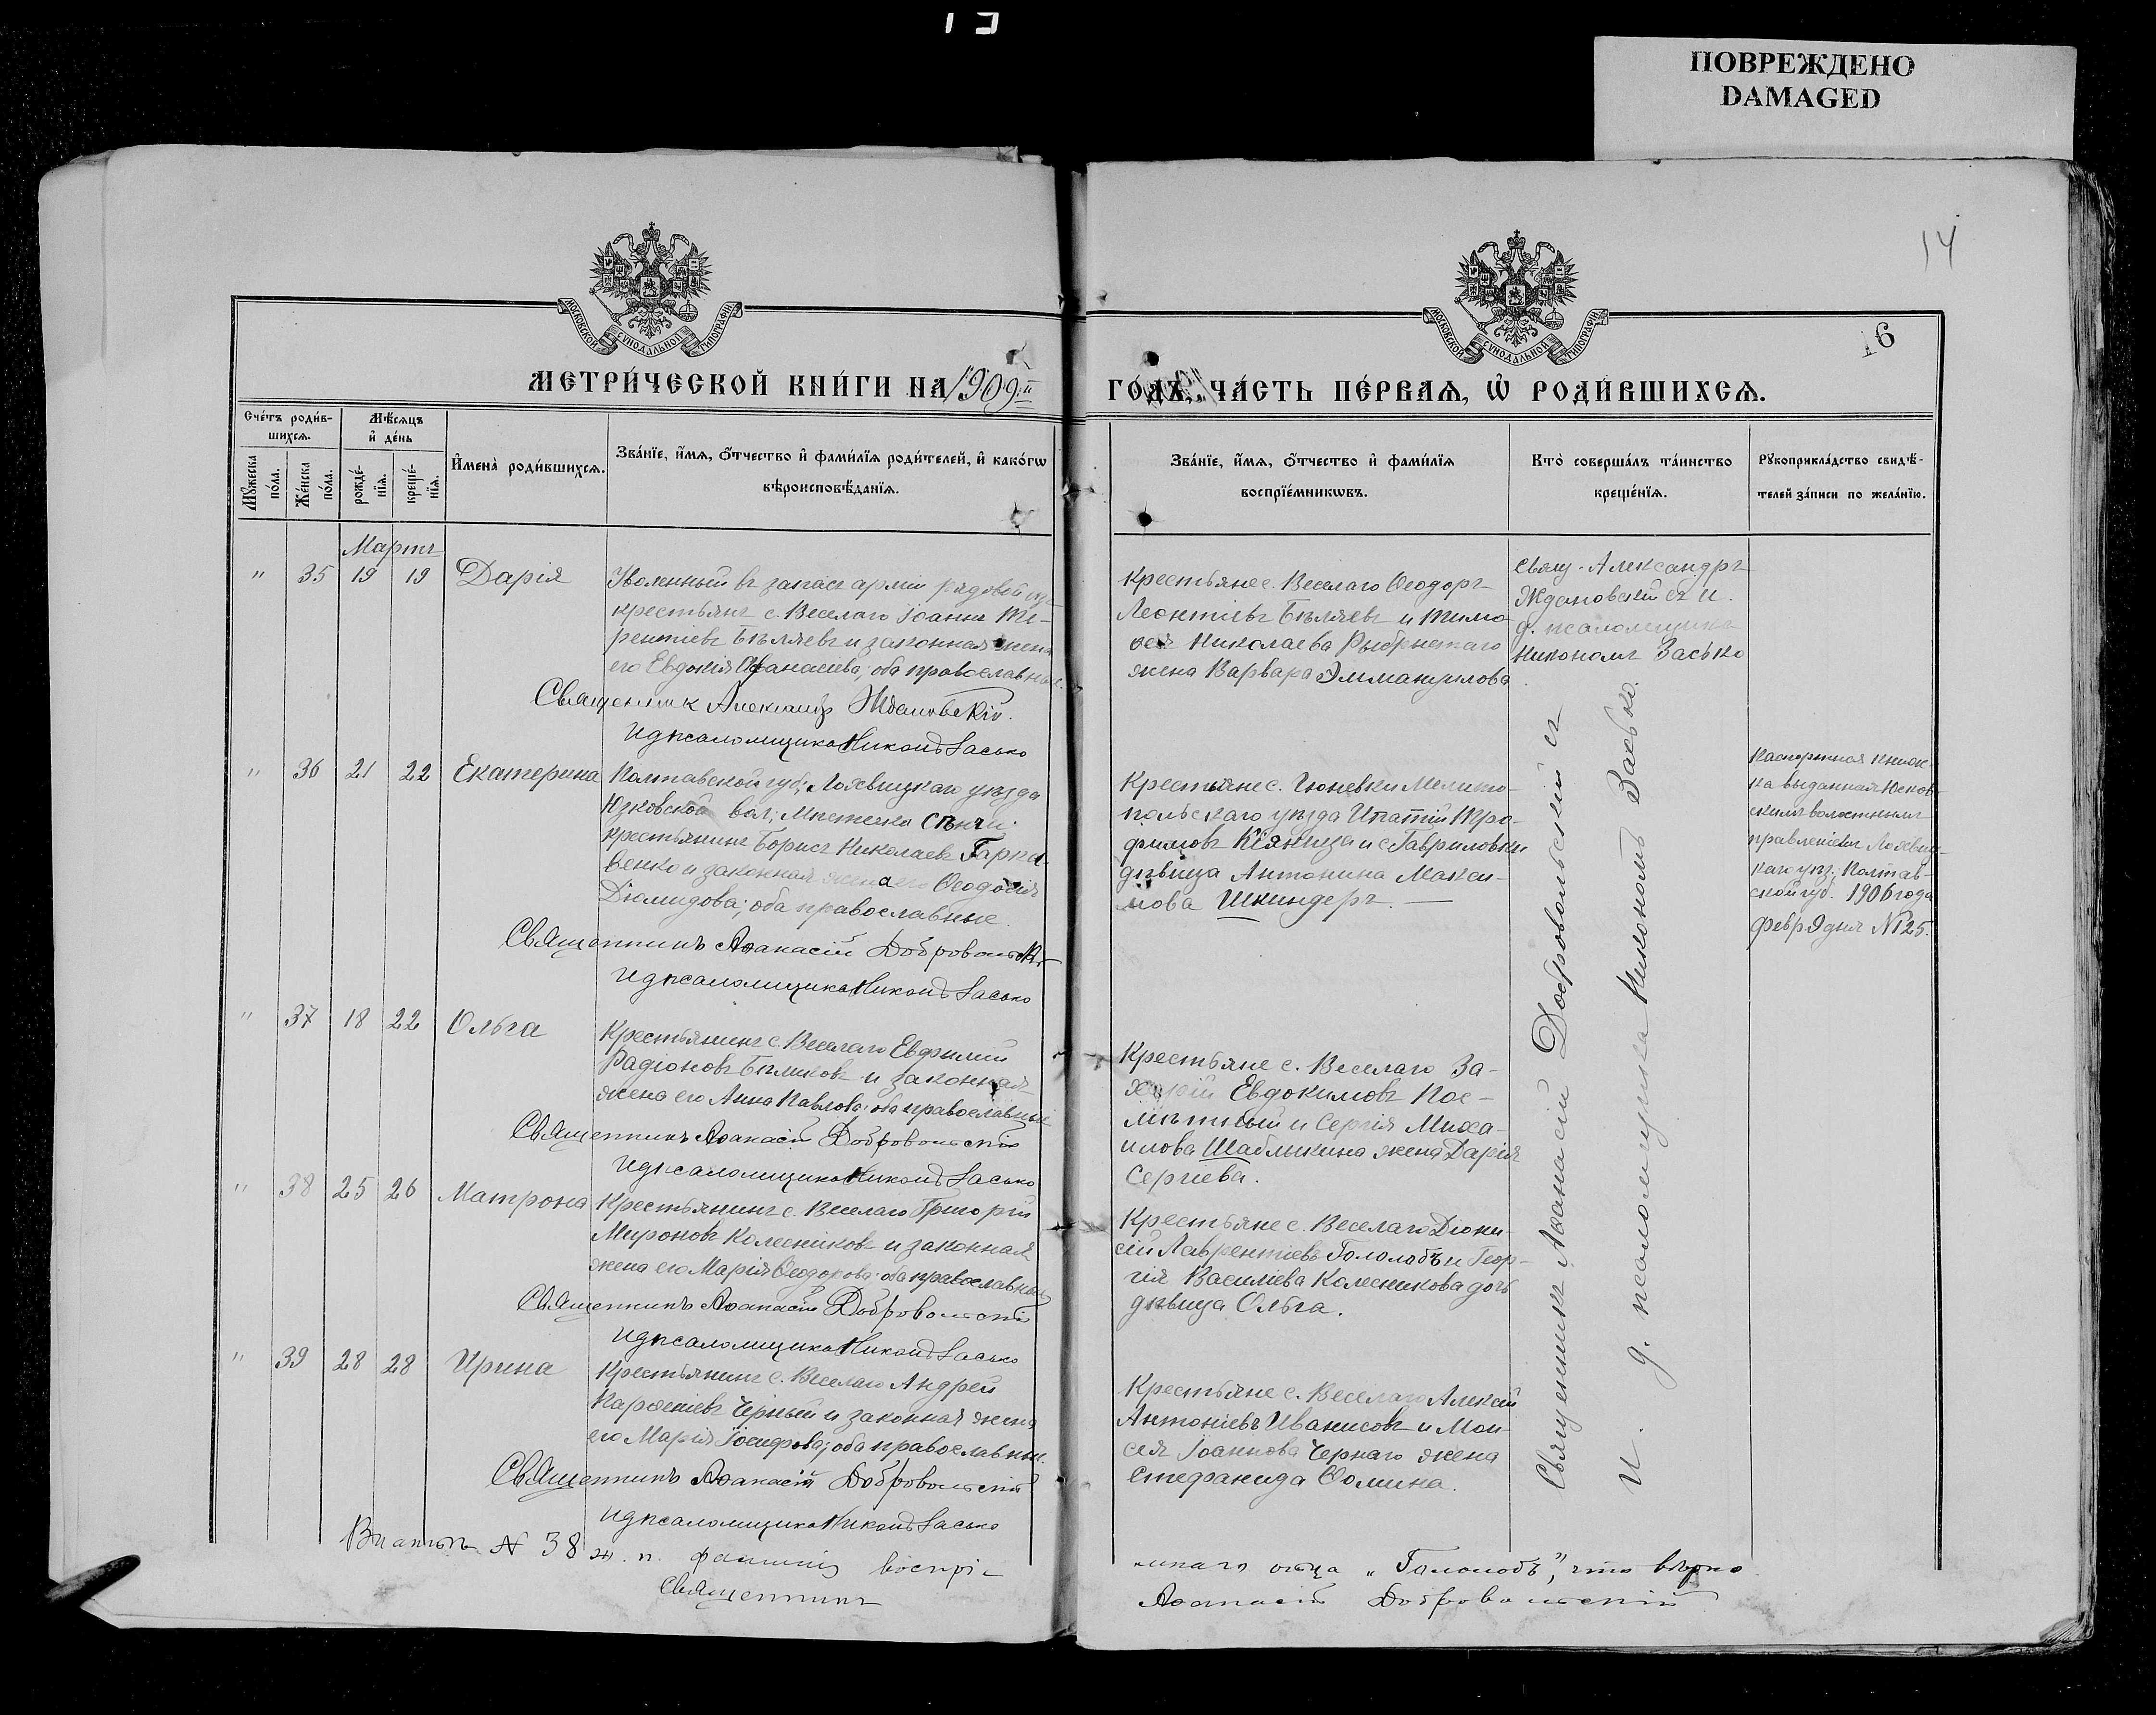 ПОВРЕЖДЕНО
DAMAGED
14
16
МОСКОВСКОЙ СѴНОДАЛЬНОЙ ТИПОГРАФІИ
МОСКОВСКОЙ СѴНОДАЛЬНОЙ ТИПОГРАФІИ
МЕТРИ́ЧЕСКОЙ КНИ́ГИ НА 1909й
ГОДЪ, ЧА́СТЬ ПЕ́РВАѦ, Ѡ҆ РОДИ́ВШИХСѦ.
Сче́тъ роди́в-
шихсѧ.
Мꙋ́жеска по́ла.
Же́нска по́ла.
Мѣ́сѧцъ
и҆ де́нь
рожде́-
нїѧ.
креще́-
нїѧ.
И҆мена̀ роди́вшихсѧ.
Зва́нїе, и҆́мѧ, ѻ҆́тчество и҆ фами́лїѧ роди́телей, и҆ како́гѡ
вѣроисповѣ́данїѧ.
Зва́нїе, и҆́мѧ, ѻ҆́тчество и҆ фами́лїѧ
воспрїе́мникѡвъ.
Кто̀ соверша́лъ та́инство
креще́нїѧ.
Рꙋкоприкла́дство свидѣ́-
телей за́писи по жела́нїю.
Мартъ
" 35 19 19 Дарія
Уволенный въ запасъ арміи рядовой изъ
крестьянъ с. Веселаго Іоаннъ Те-
рентіевъ Бѣляевъ и законная жена
его Евдокія Аѳанасіева; оба православные.
Священникъ Александръ Ждановскій.
И д псаломщика Никонъ Засько
Крестьяне с. Веселаго Ѳеодоръ
Леонтіевъ Бѣляевъ и Тимо-
ѳея Николаева Рыбрнстаго
жена Варвара Эммануилова
Свящ. Александръ
Ждановскій съ и.
д. псаломщика
Никономъ Засько
" 36 21 22 Екатерина
Полтавской губ; Лохвицкаго уѣзда
Юзковской вол; Мѣстечка Сѣнчи
крестьянинъ Борисъ Николаевъ Гарка-
венко и законная жена его Ѳеодосія
Діомидова; оба православные.
Священникъ Аѳанасій Добровольскій
И д псаломщика Никонъ Засько
Крестьяне с. Гюневки Мелито-
польскаго уѣзда Ипатій Тро-
фимовъ Кіяница и с. Гавриловки
дѣвица Антонина Макси-
мова Шкиндеръ. —
Паспортная книж-
ка выданная Юсков-
скимъ волостнымъ
правленіемъ Лохвиц-
каго уѣз. Полтав-
ской губ. 1906 года
февр 9 дня № 125.
" 37 18 22 Ольга
Крестьянинъ с. Веселаго Евфимій
Радіоновъ Бѣликовъ и законная
жена его Анна Павлова; оба православные
Священникъ Аѳанасій Добровольскій
И д псаломщика Никонъ Засько
Крестьяне с. Веселаго За-
харій Евдокимовъ Пос-
мѣтный и Сергія Миха-
илова Шаблыкина жена Дарія
Сергіева.
" 38 25 26 Матрона
Крестьянинъ с. Веселаго Григорій
Мироновъ Колесниковъ и законная
жена его Марія Ѳеодорова; оба православные
Священникъ Аѳанасій Добровольскій
И д псаломщика Никонъ Засько
Крестьяне с. Веселаго Діони-
сій Лаврентіевъ Гололобъ и Геор-
гія Василіева Колесникова дочь
дѣвица Ольга.
" 39 28 28 Ирина
Крестьянинъ с. Веселаго Андрей
Парѳеніевъ Черный и законная жена
его Марія Іосифова; оба православные.
Священникъ Аѳанасій Добровольскій
И д псаломщика Никонъ Засько
Крестьяне с. Веселаго Алексій
Антоніевъ Иванисовъ и Мои-
сея Іоаннова Чернаго жена
Стефанида Ѳомина.
Священникъ Аѳанасій Добровольскій съ
И. д. псаломщика Никономъ Засько.
Въ актѣ № 38 ж. п. фамилія воспрі-
емнаго отца „Гололобъ", что вѣрно
Священникъ Аѳанасій Добровольскій